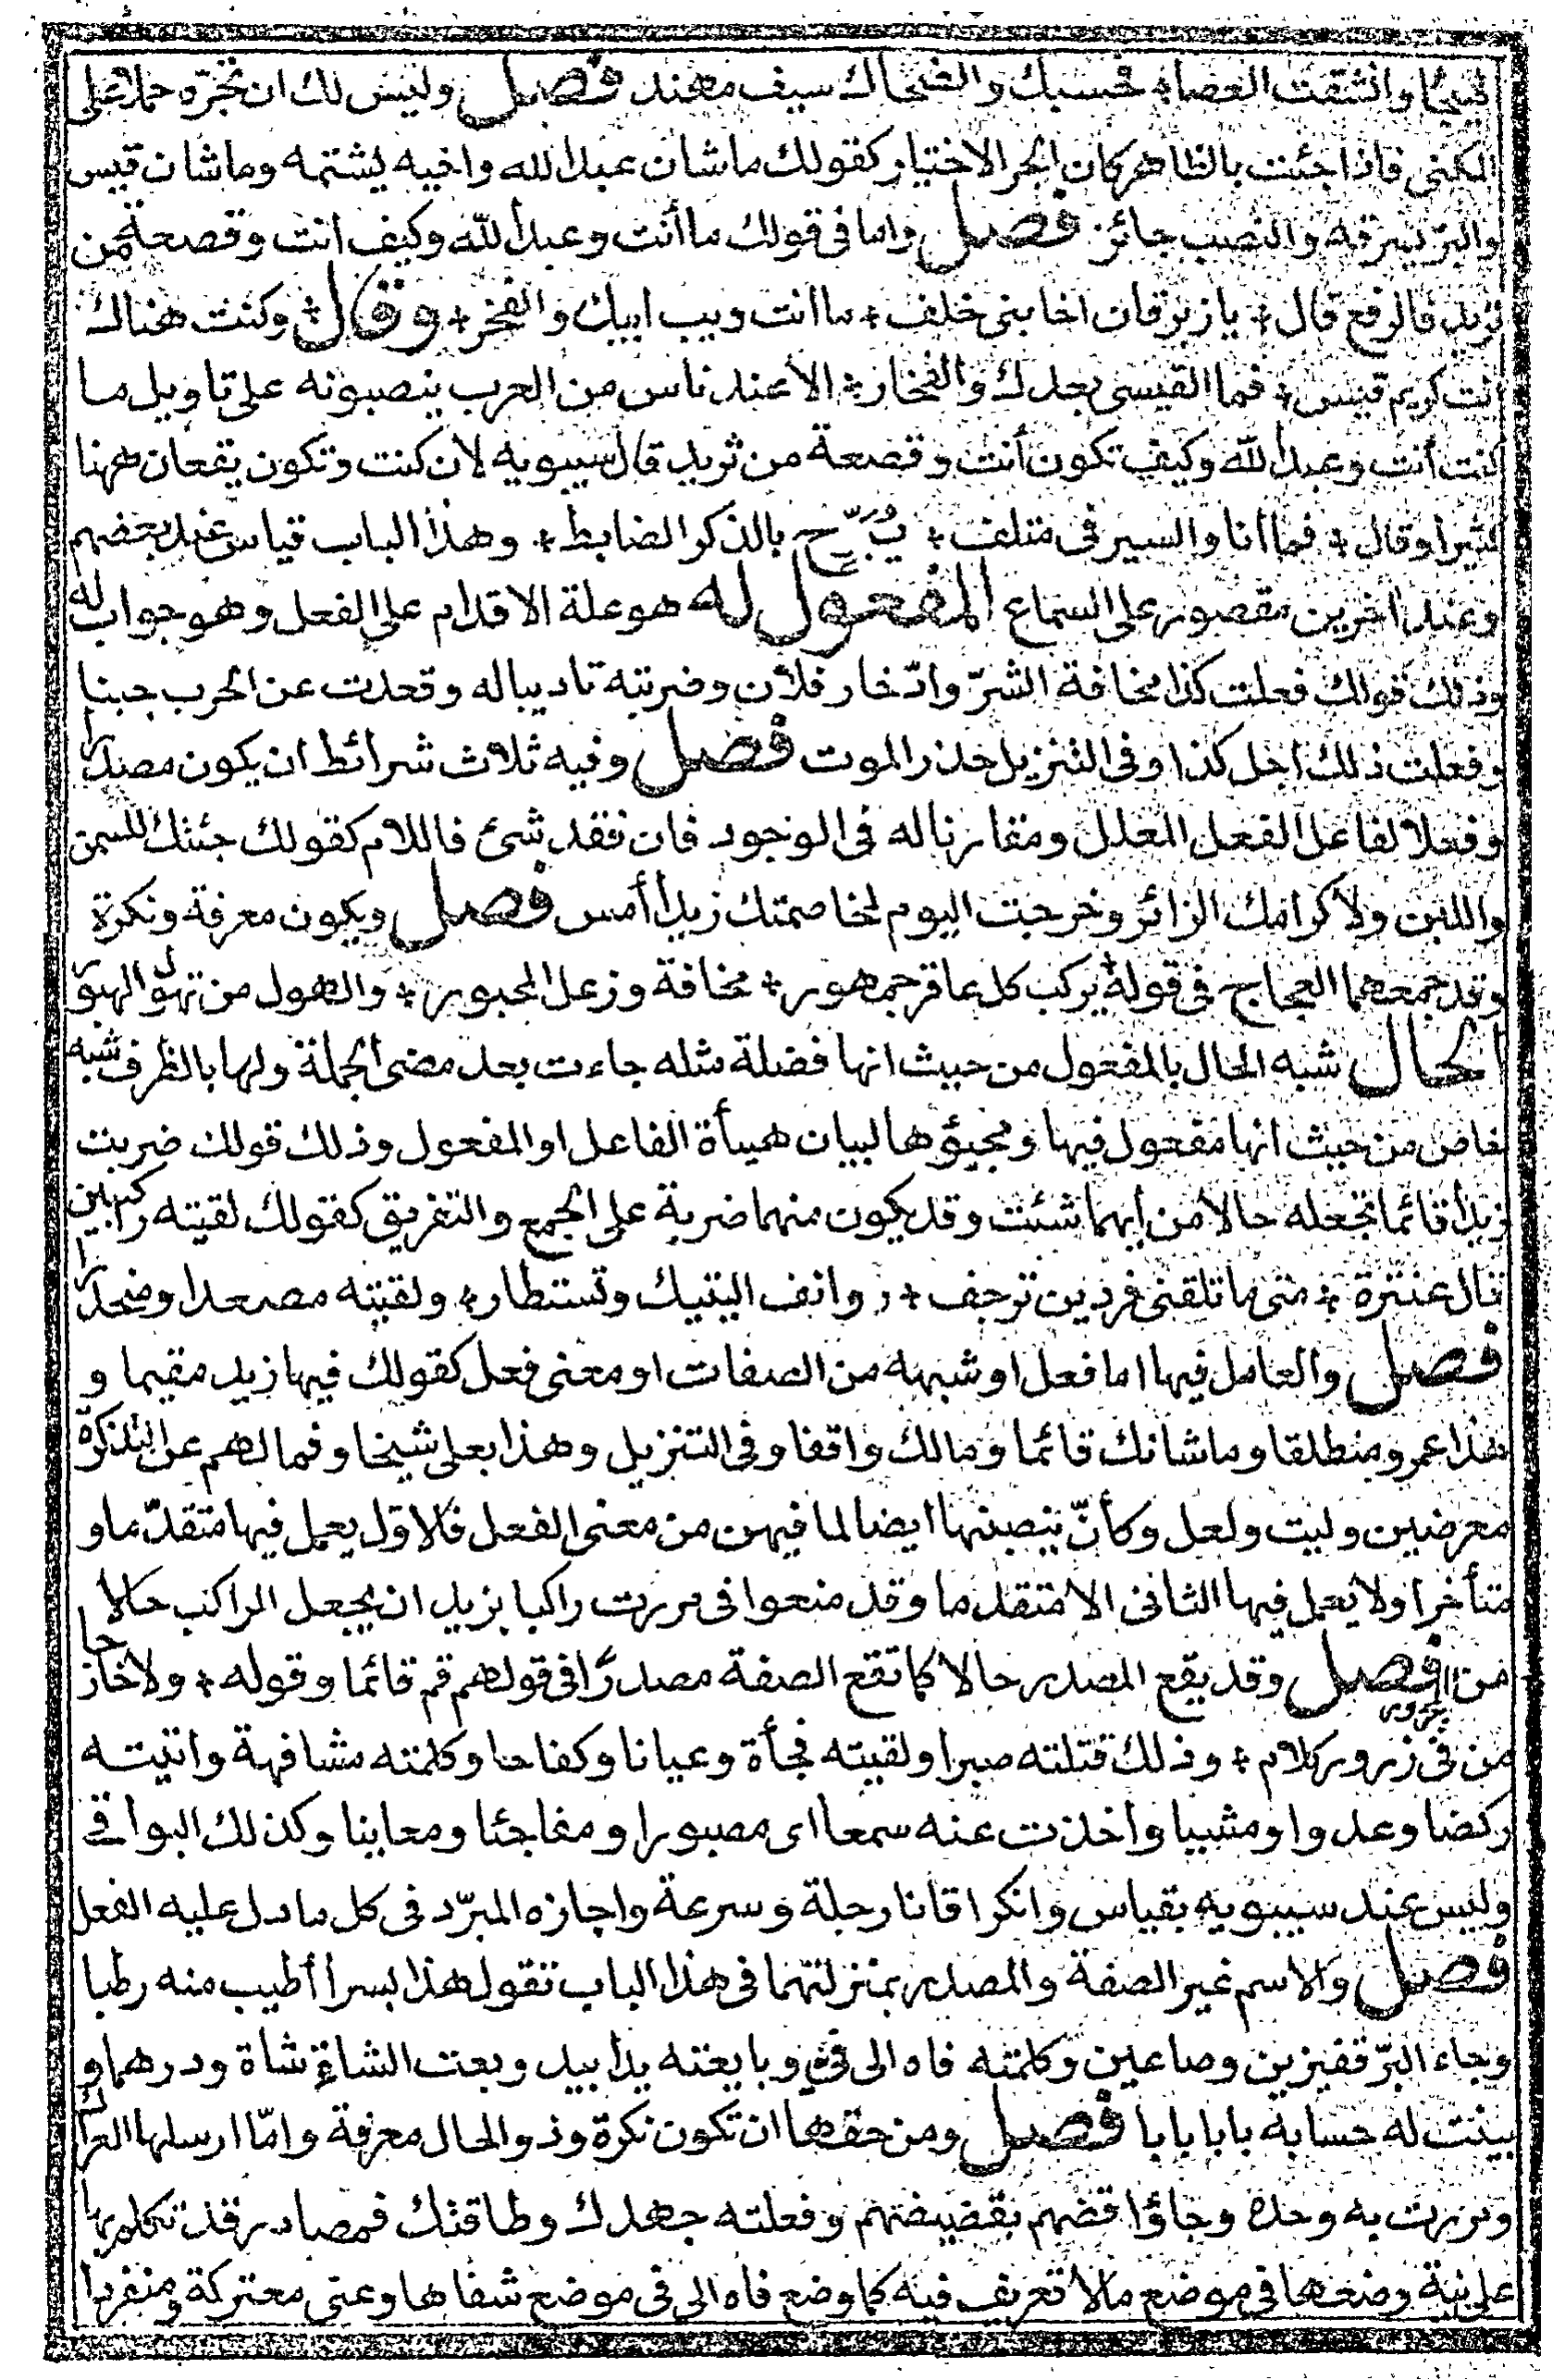 الهيجا وانشقت العصا ٭ فحسبك والضحاك سيف مهند فصل وليس لك ان تجرّه حملا على
المكنى فاذا جئت بالظاهر كان الجر الاختيار كقولك ما شان عبد الله واخيه يشتمه وما شان قيس
والبرّ يسرقه والنصب جائز فصل واما فى قولك ما أنت وعبد الله وكيف انت وقصعة من
ثريد فالرفع قال ٭ يا زبرقان اخا بنى خلف ٭ ما انت ويب ابيك والفخر ٭ وقال ٭ وكنت هناك
انت كريم قيس ٭ فما القيسى بعدك والفخار ٭ الا عند ناس من العرب ينصبونه على تاويل ما
كنت أنت وعبد الله وكيف تكون أنت وقصعة من ثريد قال سيبويه لان كنت وتكون يقعان ههنا
كثيرا وقال ٭ فما أنا والسير فى متلف ٭ يُبَرِّح بالذكر الضابط ٭ وهذا الباب قياس عند بعضهم
وعند اخرين مقصور على السماع المفعول له هو علة الاقدام على الفعل وهو جواب له
وذلك قولك فعلت كذا مخافة الشرّ وادّخار فلان وضربته تاديبا له وقعدت عن الحرب جبنا
وفعلت ذلك اجل كذا وفى التنزيل حذر الموت فصل وفيه ثلاث شرائط ان يكون مصدرا
وفعلا لفاعل الفعل المعلل ومقارنا له فى الوجود فان فقد شئ فاللام كقولك جئتك للسمن
واللبن ولاكرامك الزائر وخرجت اليوم لمخاصمتك زيدا أمس فصل ويكون معرفة ونكرة
وقد جمعهما العجاج فى قوله ٭ يركب كل عاقر جمهور ٭ مخافة وزعل المحبور ٭ والهول من تهوّل الهبور
الحال شبه الحال بالمفعول من حيث انها فضلة مثله جاءت بعد مضى الجملة ولها بالظرف شبه
خاص من حيث انها مفعول فيها ومجيؤها لبيان هيأة الفاعل او المفعول وذلك قولك ضربت
زيدا قائما تجعله حالا من ايهما شئت وقد يكون منهما ضربة على الجمع والتفريق كقولك لقيته راكبين
قال عنترة ٭ متى ما تلقنى فردين ترجف ٭ روانف اليتيك وتستطار ٭ ولقيته مصعدا ومنحدرا
فصل والعامل فيها اما فعل او شبهه من الصفات او معنى فعل كقولك فيها زيد مقيما و
هذا عمرو منطلقا وما شانك قائما وما لك واقفا وفى التنزيل وهذا بعلى شيخا وفما لهم عن التذكرة
معرضين وليت ولعل وكأنّ ينصبنها ايضا لما فيهن من معنى الفعل فالاول يعمل فيها متقدّما و
متأخرا ولا يعمل فيها الثانى الا متقدما وقد منعوا فى مررت راكبا بزيد ان يجعل الراكب حالا
من المجرور فصل وقد يقع المصدر حالا كما تقع الصفة مصدرًا فى قولهم قم قائما وقوله ٭ ولا خارجا
من فى زور كلام ٭ وذلك قتلته صبرا ولقيته فجأة وعيانا وكفاحا وكلمته مشافهة واتيته
ركضا وعدوا ومشيا واخذت عنه سمعا اى مصبورا ومفاجئا ومعاينا وكذلك البواقى
وليس عند سيبويه بقياس وانكر اتانا رجلة وسرعة واجازه المبرّد فى كل ما دل عليه الفعل
فصل والاسم غير الصفة والمصدر بمنزلتهما فى هذا الباب تقول هذا بسرا أطيب منه رطبا
وجاء البرّ قفيزين وصاعين وكلمته فاه الى فىّ وبايعته يدا بيد وبعت الشاء شاة ودرهما و
بينت له حسابه بابا بابا فصل ومن حقها ان تكون نكرة وذو الحال معرفة وامّا ارسلها العراك
ومررت به وحده وجاؤا قضهم بقضيضهم وفعلته جهدك وطاقتك فمصادر قد تكلم بها
على نية وضعها فى موضع ما لا تعريف فيه كما وضع فاه الى فى موضع شفاها وعنى معتركة ومنفردا